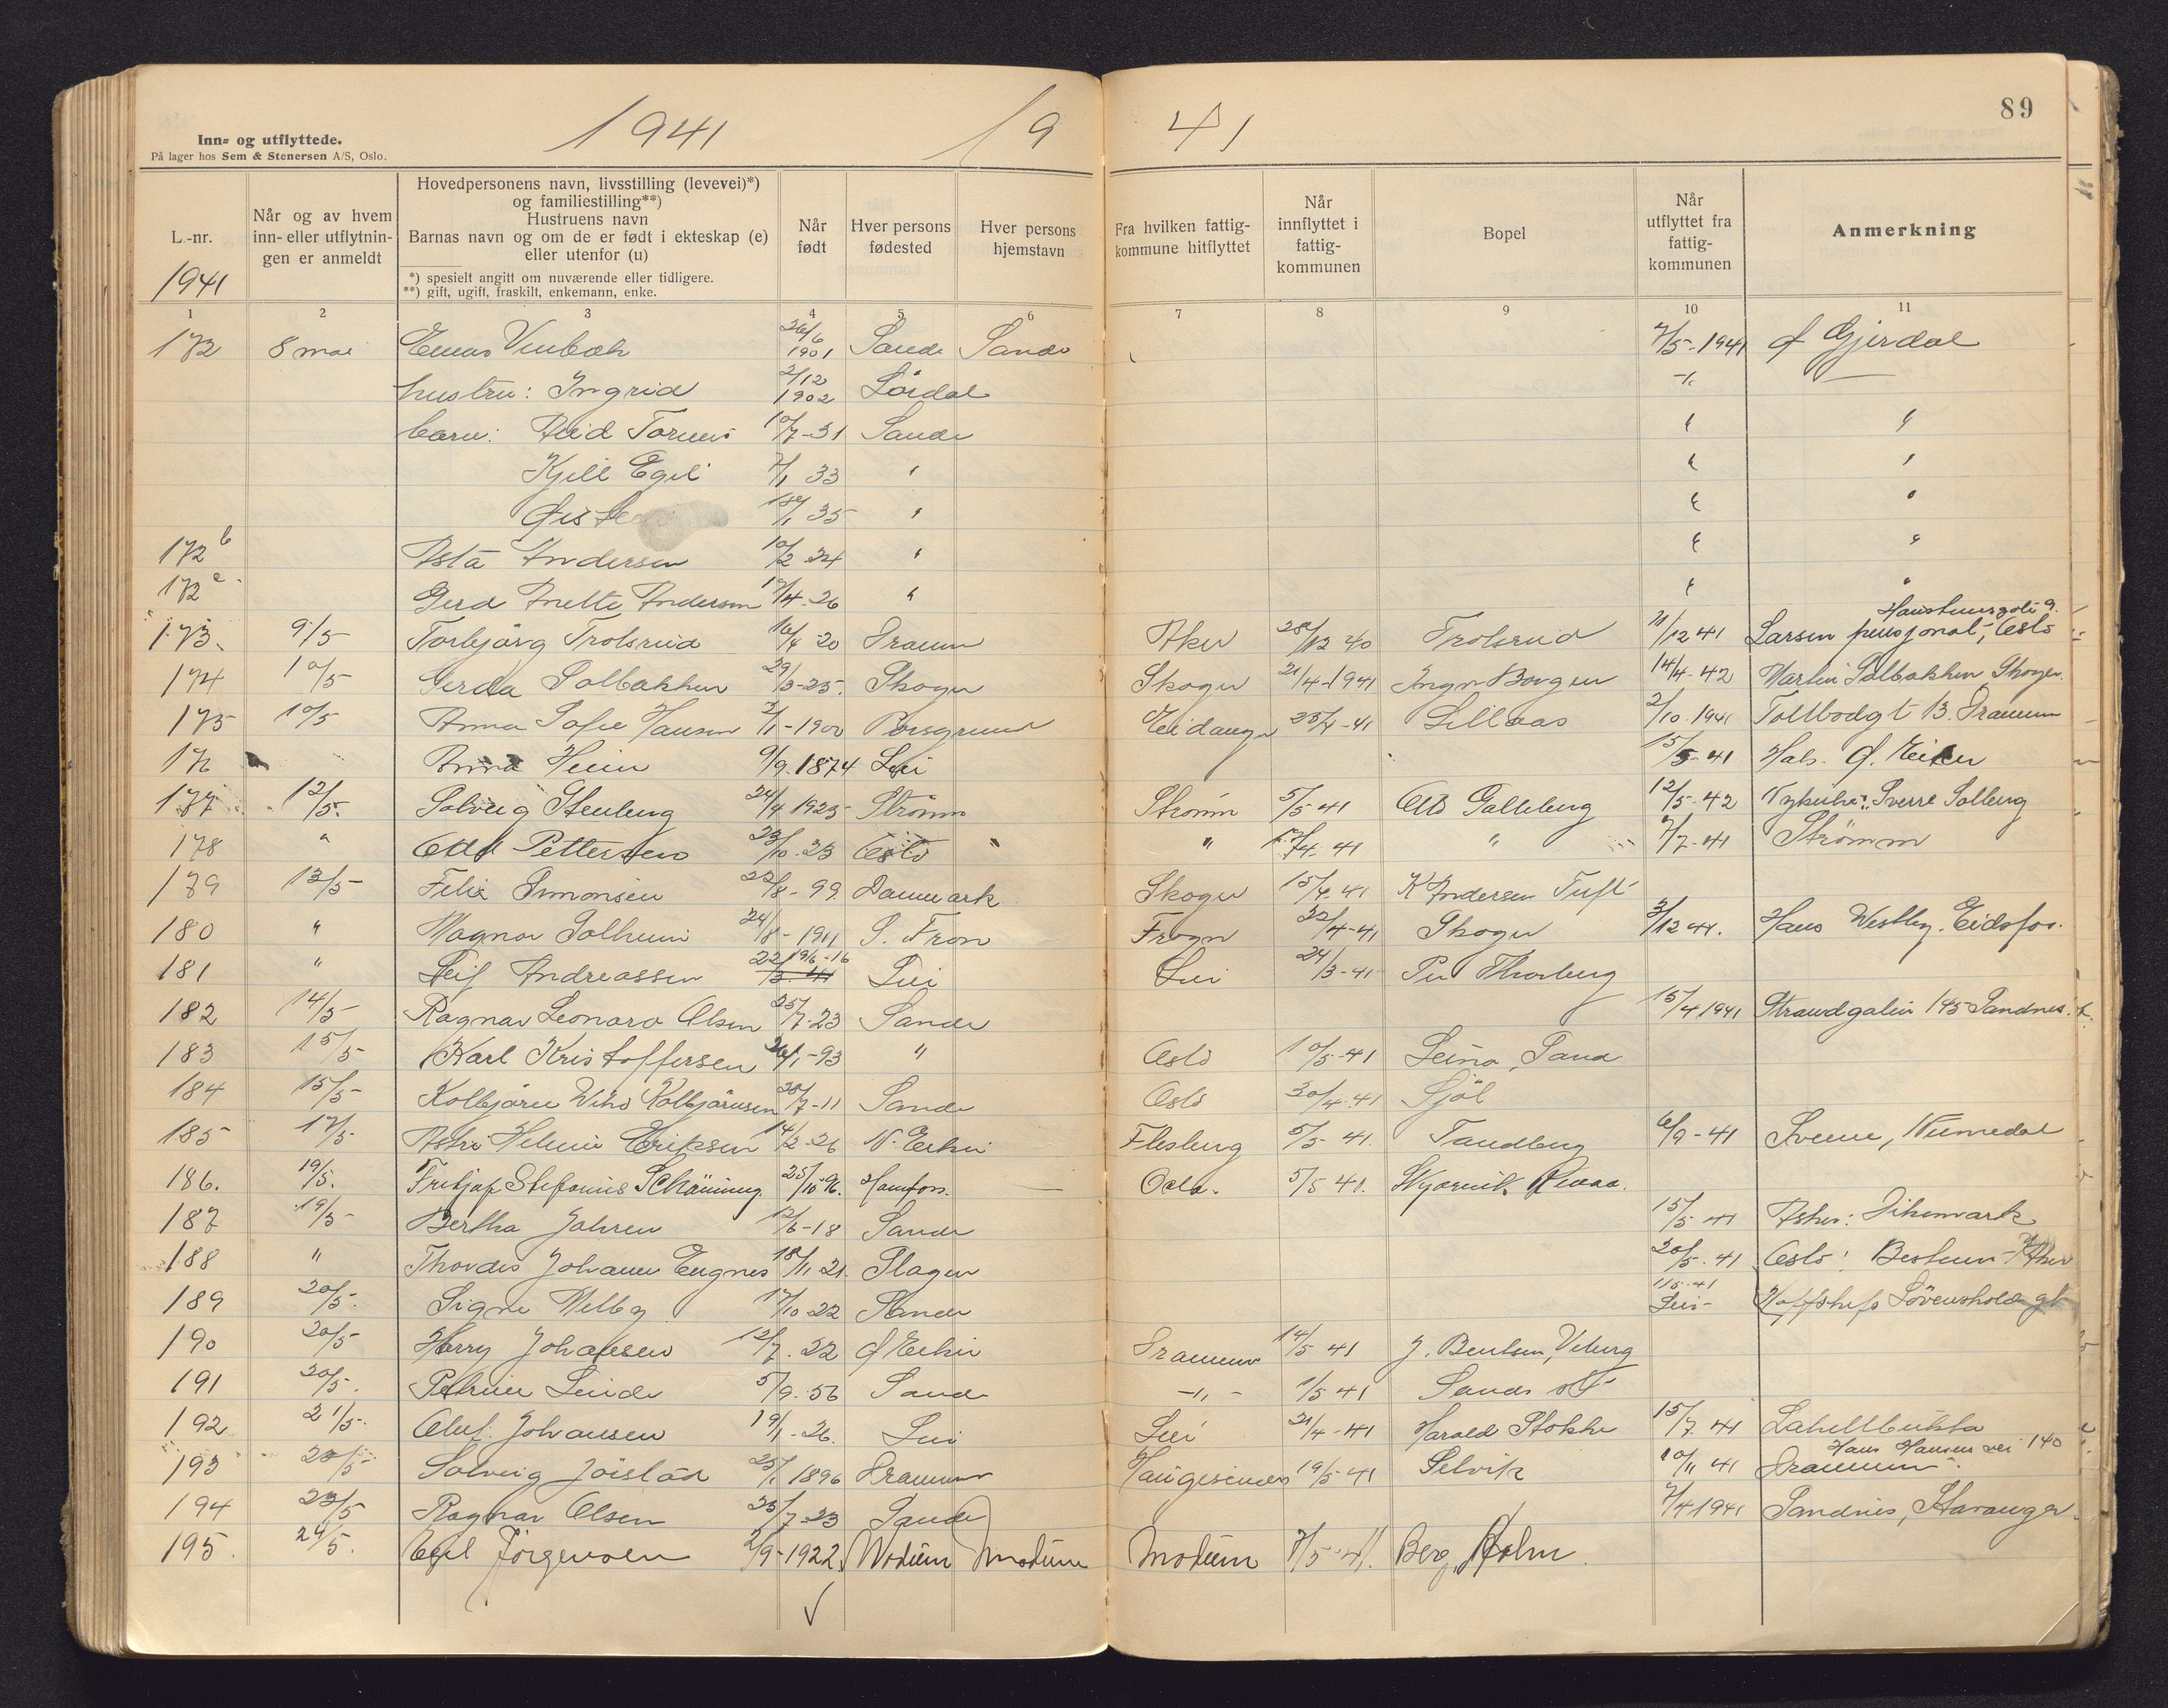 1941 19 41 89
Inn- og utflyttede.
På lager hos Sem & Stenersen A/S, Oslo.
L.-nr.
1941
Når og av hvem
inn- eller utflytnin-
gen er anmeldt
Hovedpersonens navn, livsstilling (levevei)*)
og familiestilling**)
Hustruens navn
Barnas navn og om de er født i ekteskap (e)
eller utenfor (u)
*) spesielt angitt om nuværende eller tidligere.
**) gift, ugift, fraskilt, enkemann, enke.
Når
født
Hver persons
fødested
Hver persons
hjemstavn
Fra hvilken fattig-
kommune hitflyttet
Når
innflyttet i
fattig-
kommunen
Bopel
Når
utflyttet fra
fattig-
kommunen
Anmerkning
1 2 3 4 5 6 7 8 9 10 11
172 8 mai 26/6 1901 Sande Sande 7/5-1941
hustru: Ingrid 2/12 1902
barn: 10/7-31 Sande
Kjell Egil 7/1 33 "
18/1 35 "
172 b Asta Andersen 10/2 24 "
172 c Gerd Anette Andersen 17/4-26 "
173. 9/5 Torbjørg Trolsrud 16/4 20 Dramm Aker 28/12 40 Trolsrud 11/12 41 Larsen pensjonat, Oslo
174 10/5 Gerda Solbakken 29/3-25. Skoger Skoger 21/4-1941 14/4-42 Martin Solbakken Skoger
175 10/5 Anna Sofie Hansen 2/1-1900 Porsgrund Eidanger 25/4-41 Lillaas 2/10-1941 Tollbodgt 13. Drammen
176 Anna 9/9.1874 Lier 15/5-41
177 12/5. Solveig Stenberg 24/4 1925 Strømm Strømm 5/5 41 Otto Galleberg 12/5-42 Sverre Solberg
178 " Otto Pettersen 23/10-23 Oslo " " 17/4-41 " 7/7-41 Strømm
179 13/5 Felix Simonsen 22/8-99. Danmark Skoger 15/4-41 K Andersen Tuft
180 " Magnar Solheim 24/8-1911 S. Fron Frogn 22/4-41 Skoger 3/12 41. Hans Westby. Eidsfos.
181 " Leif Andreassen 22/3-41 19/6-16 Lier Lier 24/3-41 Per Thorberg
182 14/5 Ragnar Leonard Olsen 25/7-23 Sande 15/4 1941 Strandgaten 145 Sandnes
183 15/5 Karl Kristoffersen 26/1-93 " Oslo 10/5-41 Sand
184 15/5 Kolbjørn Kolbjørnsen 28/7-11 Sande Oslo 30/4-41 Sjøl
185 17/5 Eriksen 14/2-26 N. Eiker Flesberg 5/5-41. Tandberg 6/9-41 Svene, Numedal
186. 19/5. Fritjof Stefanius Schäning. 25/10-96. Oslo. 5/5 41.
187 19/5 Bertha Johren 12/6-18 Sande 15/5-41 Asker: Dikemark
188 " Thordis Johanne Engnes 18/11 21. Slagen 20/5-41 Oslo: Bestum - Aker
189 20/5. Signe Melby 17/10 22 Sande 1/5-41 Lier-
190 20/5 Harry Johansen 12/7.22 Ø Eiker Drammen 14/5 41 J. Bentsen, Viberg
191 20/5. Linde 5/9-56 Sande -"- 1/5 41 Sande
192 21/5. Oluf Johansen 19/1-26. Lier Lier 21/4-41 Harald Stokke 15/7 41 Lahellbukta
193 23/5 Solveig 25/1 1896 Drammen 19/5-41 Selvik 10/11 41 Hans Hansens vei 140 Drammen.
194 23/5 Ragnar Olsen 25/7-23 Sande 7/4 1941 Sandnes, Stavanger
195. 24/5. Egil Jörgensen 2/9-1922. Modum Modum Modum 7/5-41. Berg, Holm.